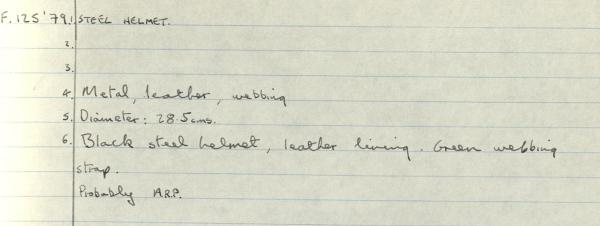 F.125'79.1. STEEL HELMET.
2.
3.
4. Metal, leather, webbing
5. Diameter: 28.5cms.
6. Black steel helmet, leather lining. Green webbing
strap.
Probably A.R.P.